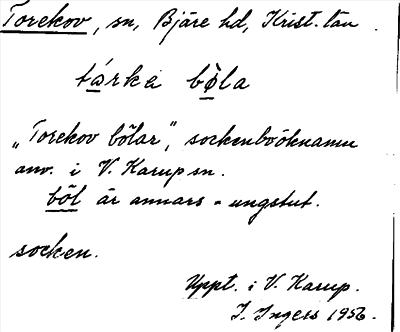 Torekov, sn, Bjäre hd, Krist. län
tárka bǿla
"Torekov bölar", sockenböknamn
anv. i V. Karup sn.
böl är annars = ungstut.
socken.
Uppt. i V. Karup.
I. Ingers 1956.